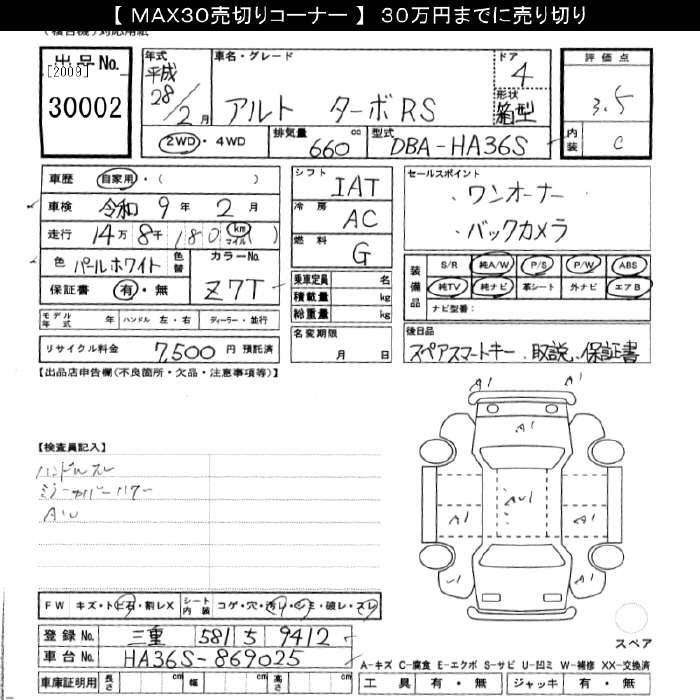 【 MAX30売切りコーナー 】 30万円までに売り切り
出品No.
[2009]
30002
年式
平成
28/2月
車名・グレード
アルト ターボRS
ドア
4
形状
箱型
評価点
3.5
内装
C
2WD・4WD
排気量
660 cc
型式
DBA-HA36S
車歴 自家用・( )
車検 令和 9年 2月
走行 14万 8千 180 (km マイル)
色 パールホワイト 色替
カラーNo.
Z7T
保証書 有・無
シフト
IAT
冷房
AC
燃料
G
セールスポイント
・ワンオーナー
・バックカメラ
装備品
S/R 純A/W P/S P/W ABS
純TV 純ナビ 革シート 外ナビ エアB
ナビ型番:
乗車定員 名
積載量 kg
総重量 kg
モデル年式 年 ハンドル 左・右 ディーラー・並行
名変期限
月 日
リサイクル料金 7,500 円 預託済
後日品
スペアスマートキー、取説、保証書
【出品店申告欄(不良箇所・欠品・注意事項等)】
【検査員記入】
ハンドルスレ
A1
A1
A1
A1
A1
FW キズ・トビ石・割レX シート内装 コゲ・穴・汚レ・シミ・破レ・スレ
登録No. 三重 581 5 9412
車台No. HA36S-869025
車庫証明用 長さ cm 幅 cm 高さ cm
スペア
A-キズ C-腐食 E-エクボ S-サビ U-凹ミ W-補修 XX-交換済
工具 有・無 ジャッキ 有・無